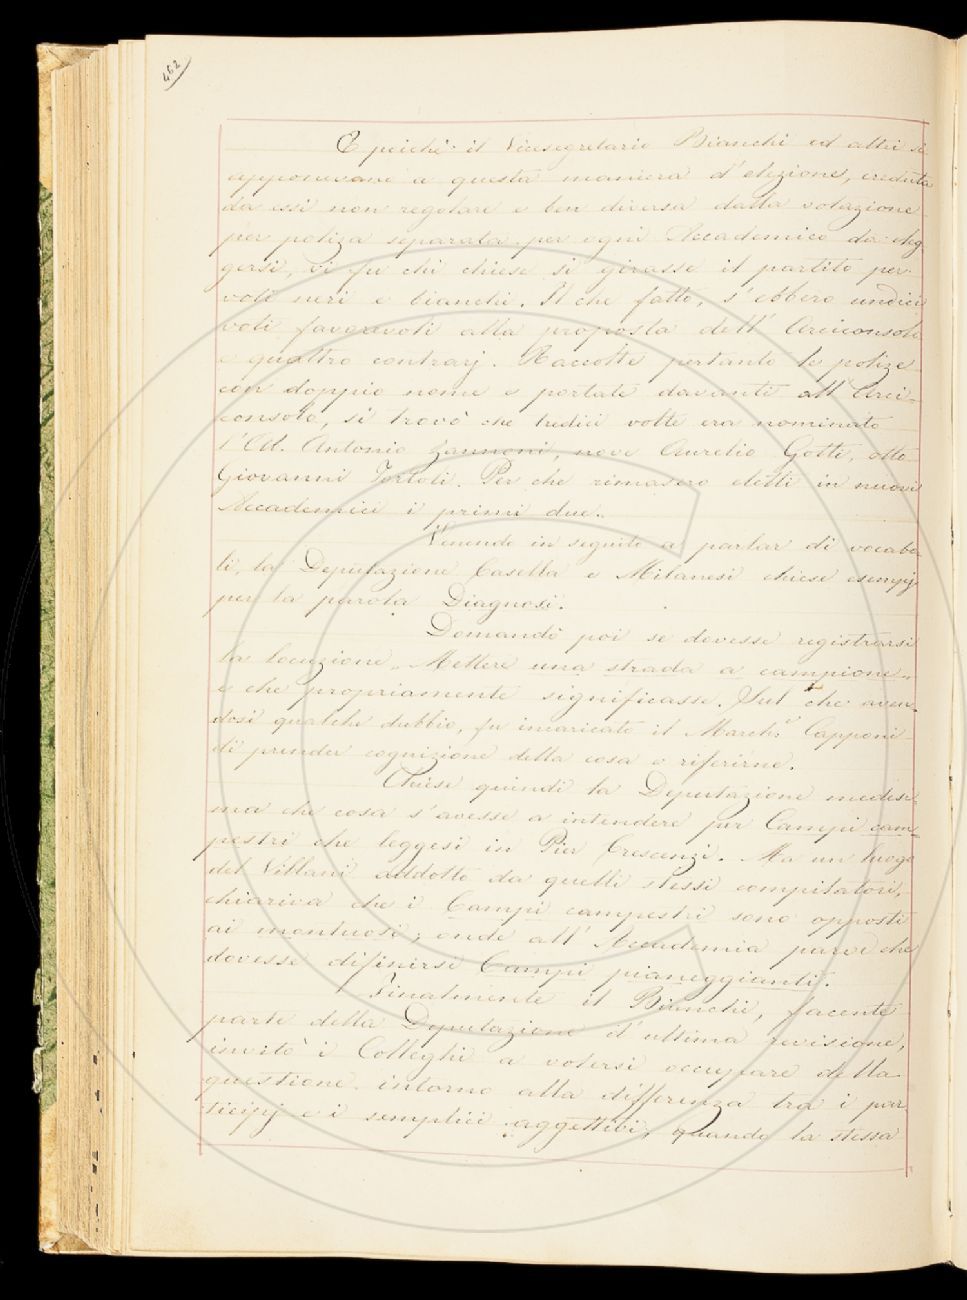 462
E poichè il Vicesegretario Bianchi ed altri si
opponevano a questa maniera d'elezione, creduta
da essi non regolare e ben diversa dalla votazione
per poliza separata per ogni Accademico da eleg-
gersi, vi fu chi chiese si girasse il partito per
voti neri e bianchi. Il che fatto, s'ebbero undici
voti favorevoli alla proposta dell'Arciconsolo
e quattro contrarj. Raccolte pertanto le polize
con doppio nome e portate davanti all'Arci-
consolo, si trovò che tredici volte era nominato
l'Ab. Antonio Zannoni, nove Aurelio Gotti, otto
Giovanni Tortoli. Per che rimasero eletti in nuovi
Accademici i primi due.
Venendo in seguito a parlar di vocabo-
li, la Deputazione Casella e Milanesi chiese esempj
per la parola Diagnosi.
Domandò poi se dovesse registrarsi
la locuzione „ Mettere una strada a campione „
e che propriamente significasse. Sul che aven-
dosi qualche dubbio, fu incaricato il March.e Capponi
di prender cognizione della cosa e riferirne.
Chiese quindi la Deputazione medesi-
ma che cosa s'avesse a intendere per Campi cam-
pestri che leggesi in Pier Crescenzi. Ma un luogo
del Villani addotto da quelli stessi compilatori,
chiariva che i Campi campestri sono opposti
ai montuosi; onde all'Accademia parve che
dovesse difinirsi Campi pianeggianti.
Finalmente il Bianchi, facente
parte della Deputazione d'ultima revisione,
invitò i Colleghi a volersi occupare della
questione intorno alla differenza tra i par
ticipj e i semplici aggettivi, quando la stessa